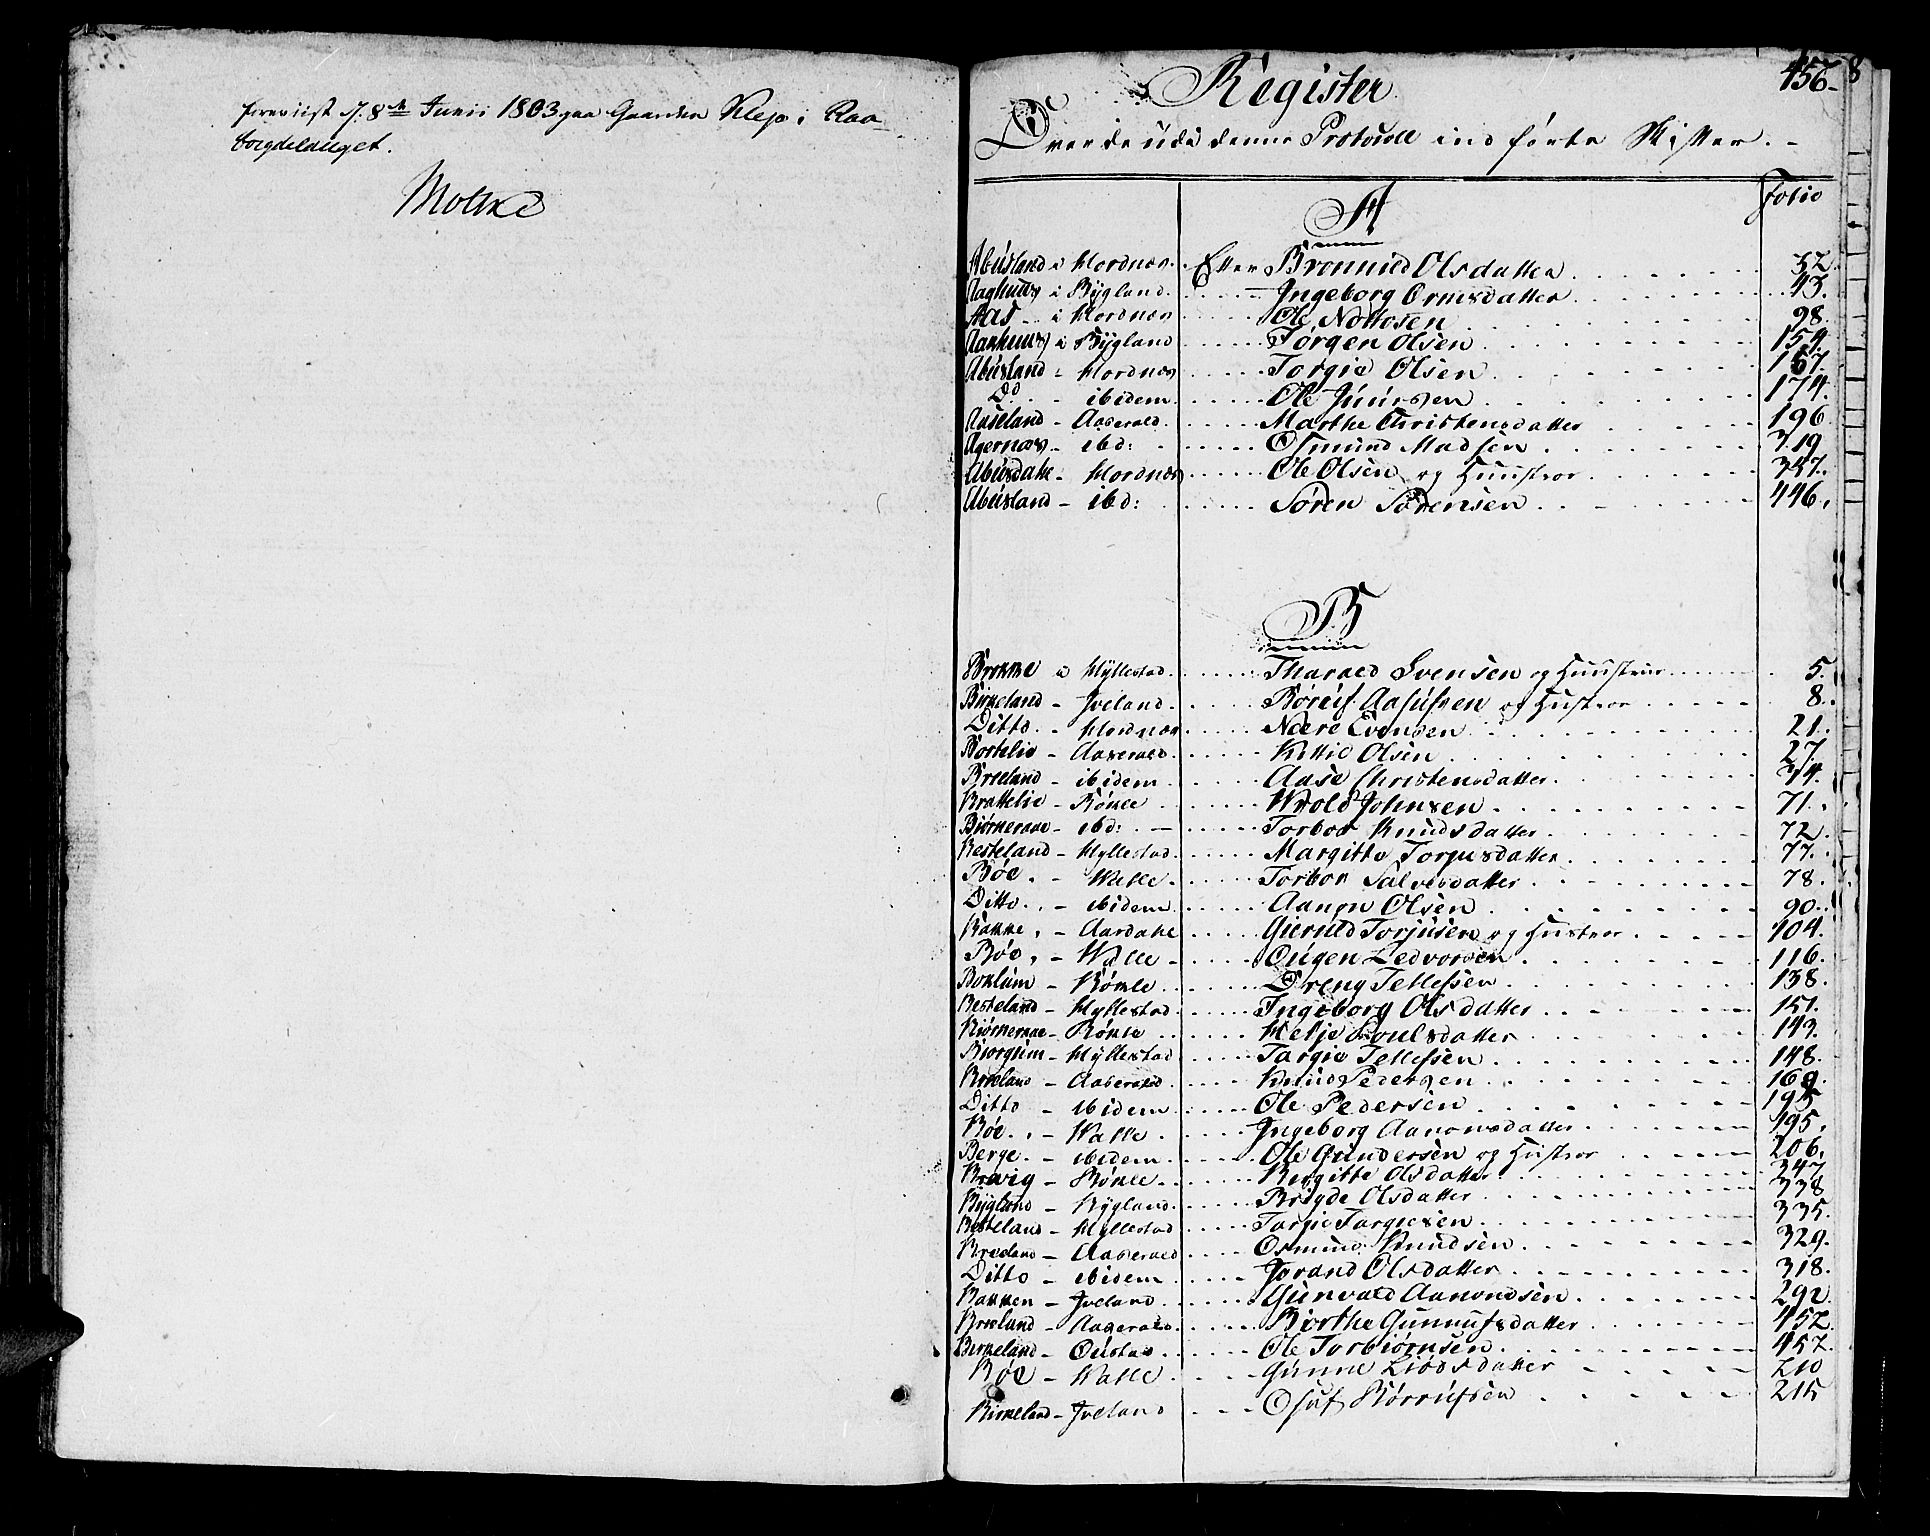 foreviist d. 8de Junii 1803 paa Gaarden Klep i Raa-
bøigdelauget.
Moltke
456
8
Register
Over de udi denne Protocoll indførte Skifter.
Folio
A
Abusland i Hordnæs Efter Bronnild Olsdatter 32.
Aaghuus i Bÿgland Ingeborg Ormsdatter 43.
Aas i Hordnæs Ole Nottosen 98.
Aakhuus i Bÿgland Jørgen Olsen 154.
Abusland - Hordnæs Torgie Olsen 157.
Do - ibidem Ole Juursen 174.
Aaseland - Aaserald Marthe Christensdatter 196
Agernæs - ibd: Osmund Madsen 319
Abusdahl - Hordnæs Ole Olsen og Huustroe 357.
Abusland - ibd: Søren Sørensen 446.
B
Brokke i Hÿllestad Tharald Svensen og Huustrue 5.
Birkeland - Iveland Børeuf Aasufsen og Hustroe 8.
Ditto - Hordnæs Nære Evensen 21.
Bortelie - Aaserald Kittil Olsen 27.
Breeland - ibidem Aase Christensdatter 34.
Brattelie - Bÿkle Wrold Johnsen 71.
Biørneraae - ibd: Torbor Knudsdatter 72.
Besteland - Hyllestad Margitte Torjusdatter 77.
Bøe - Walle Torbor Salvesdatter 78.
Ditto - ibidem Aanon Olsen 90.
Bakke - Aardahl Gieruld Torjusen og Hustroe 104.
Bøe - Walle Ougen Ledvorsen 116.
Boklum - Bÿkle Dreng Tellefsen 138.
Besteland - Hyllestad Ingeborg Olsdatter 151.
Biørneraae - Bøkle Helje Poulsdatter 143.
Biorgum - Hÿllestad Targie Tellefsen 148.
Breeland - Aaserald Knud Pedersen 169.
Ditto - ibidem Ole Pedersen 195.
Bøe - Walle Ingeborg Aanonsdatter 195.
Berge - ibidem Ole Gundersen og Hustroe 206.
Breivig - Bøkle Bergitte Olsdatter 347
Bÿgland - Bÿgland Brigde Olsdatter 338
Besteland - Hyllestad Targie Targiesen 335.
Breeland - Aaserald Osmund Knudsen 329.
Ditto - ibidem Jorand Olsdatter 318.
Bakken - Iveland Gunvald Aanondsen 292.
Breeland - Aaserald Birthe Gunnufsdatter 452.
Birkeland - Oustad Ole Torbiørnsen 457.
Bøe - Walle Gunne Liodsdatter 210
Birkeland - Iveland Osuf Børrufsen 215